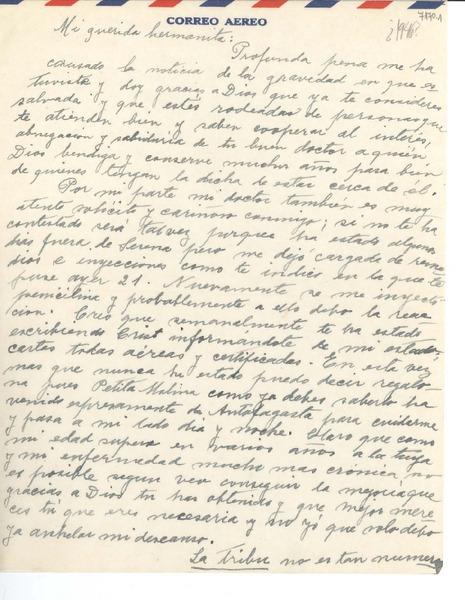 CORREO AEREO
7170.1
¿1948?
Mi querida hermanita:
Profunda pena me ha
causado la noticia de la gravedad en que es-
tuviste y doy gracias a Dios que ya te consideres
salvada y que estés rodeada de personas que
te atienden bien y saben cooperar al interés,
abnegación y sabiduría de tu buen doctor a quien
Dios bendiga y conserve muchos años para bien
de quienes tengan la dicha de estar cerca de él.
Por mi parte mi doctor también es muy
atento solícito y cariñoso conmigo; si no te ha
contestado será talvez porque ha estado algunos
días fuera de Serena pero me dejó cargada de reme
dios e inyecciones como te indico en la que te
puse ayer 21. Nuevamente se me inyectó
penicilina y probablemente a ello debo la reac
ción. Creo que semanalmente te ha estado
escribiendo Crist informandote de mi estado,
cartas todas aéreas y certificadas. En esta vez
mas que nunca he estado puedo decir regalo
na pues Petita Molina como ya debes saberlo ha
venido expresamente de Antofagasta para cuidarme
y pasa a mi lado día y noche. Claro que como
mi edad supera en varios años a la tuya
y mi enfermedad mucho mas crónica, no
es posible segun veo conseguir la mejoría que
gracias a Dios tu has obtenido y que mejor mere
ces tú que eres necesaria y no yo que solo debo
ya anhelar mi descanso.
La tribu no es tan numero